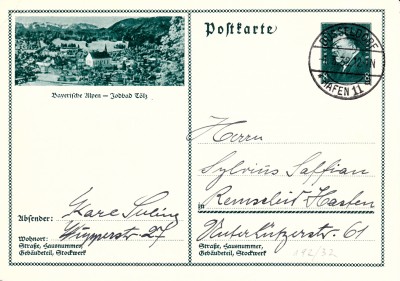 Postkarte
DÜSSELDORF
HAFEN 11
Bayerische Alpen — Jodbad Tölz
Herrn
Sylvius Saffian
in Remscheid-Hasten
Unterhützerstr. 61
Absender: Karl
Wohnort: Wupperstr. 27
Straße, Hausnummer,
Gebäudeteil, Stockwerk
Straße, Hausnummer,
Gebäudeteil, Stockwerk